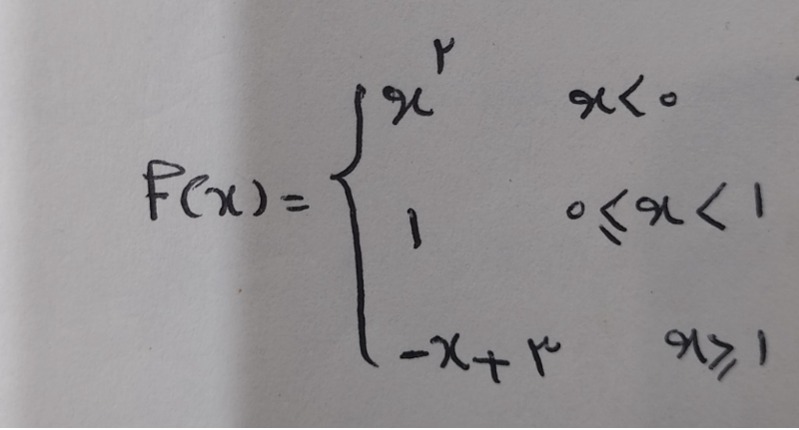 F(x) = { x^۲   x < ۰
۱   ۰ ≤ x < ۱
-x + ۳   x ≥ ۱